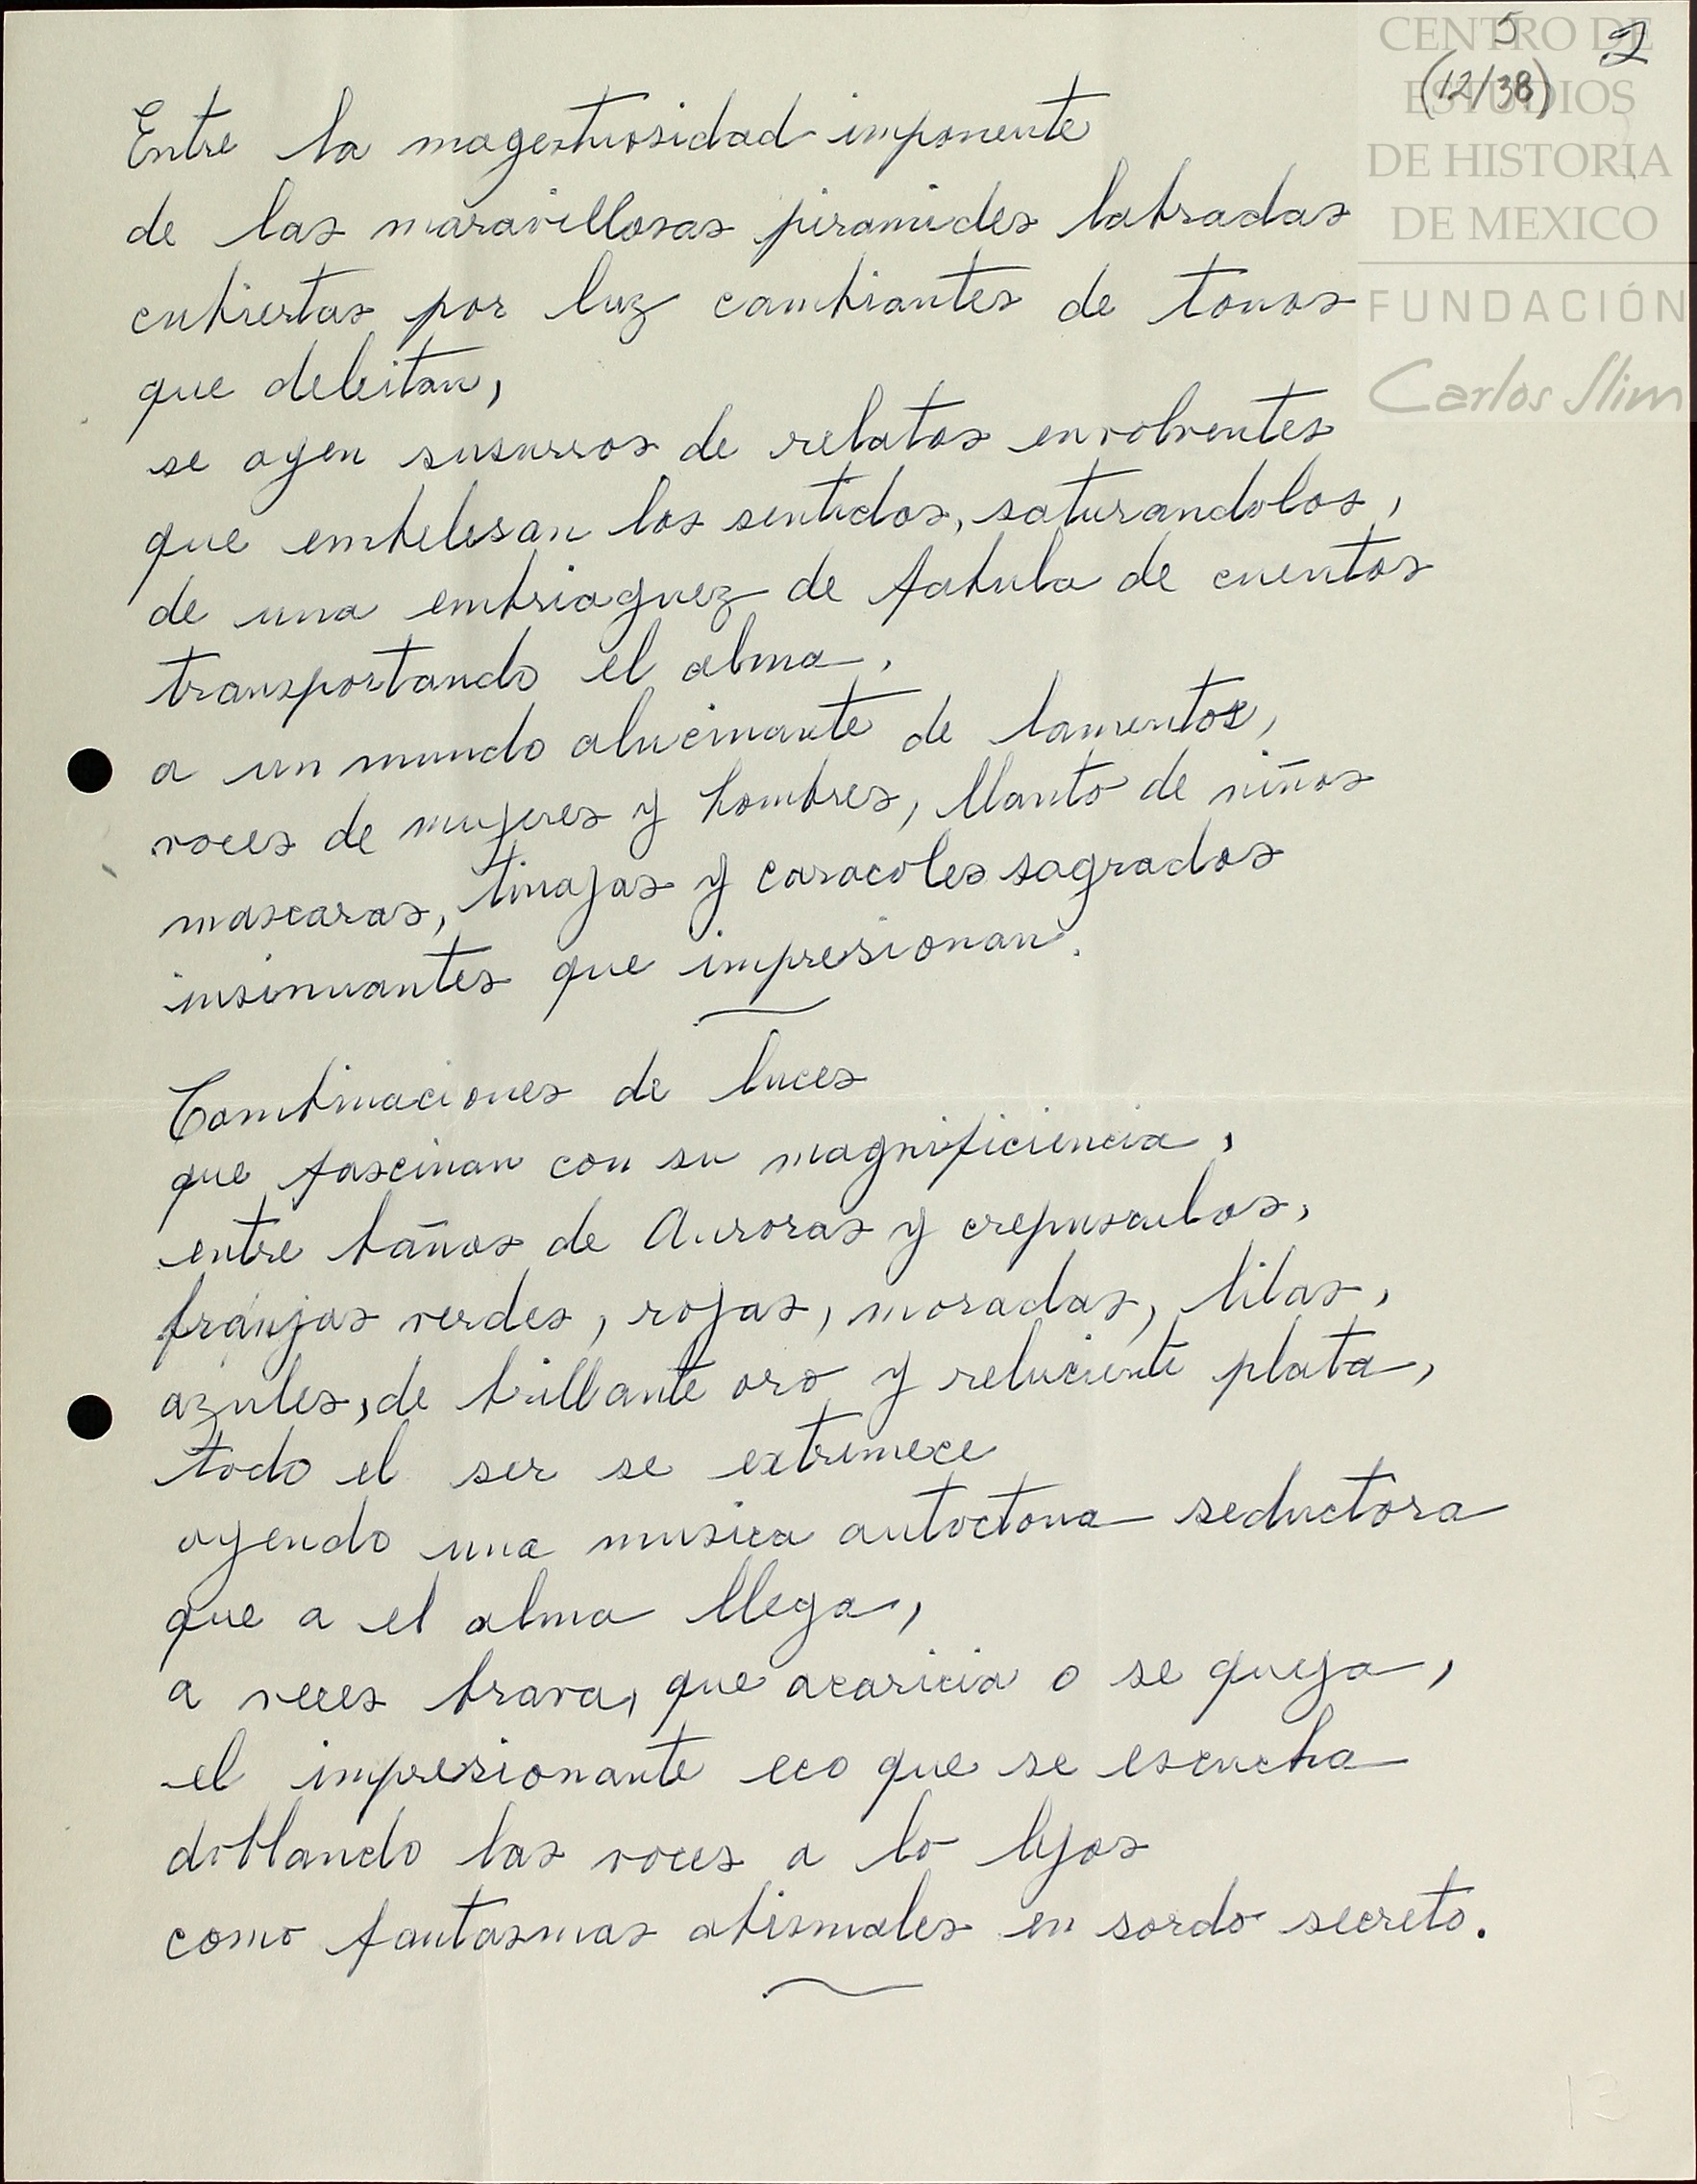 CENTRO DE
ESTUDIOS
DE HISTORIA
DE MEXICO
FUNDACIÓN
Carlos Slim
5
2
(12/38)
Entre la magestuosidad imponente
de las maravillosas piramides labradas
cubiertas por luz cambiantes de tonos
que deleitan,
se oyen susurros de relatos envolventes
que embelesan los sentidos, saturandolos,
de una embriaguez de fabula de cuentos
transportando el alma,
a un mundo alucinante de lamentos,
voces de mujeres y hombres, llanto de niños
mascaras, tinajas y caracoles sagrados
insinuantes que impresionan.
Combinaciones de luces
que fascinan con su magnificiencia,
entre baños de Auroras y crepusculos,
franjas verdes, rojas, moradas, lilas,
azules, de brillante oro y reluciente plata,
todo el ser se extremece
oyendo una musica autoctona seductora
que a el alma llega,
a veces brava, que acaricia o se queja,
el impresionante eco que se escucha
doblando las voces a lo lejos
como fantasmas abismales en sordo secreto.
13